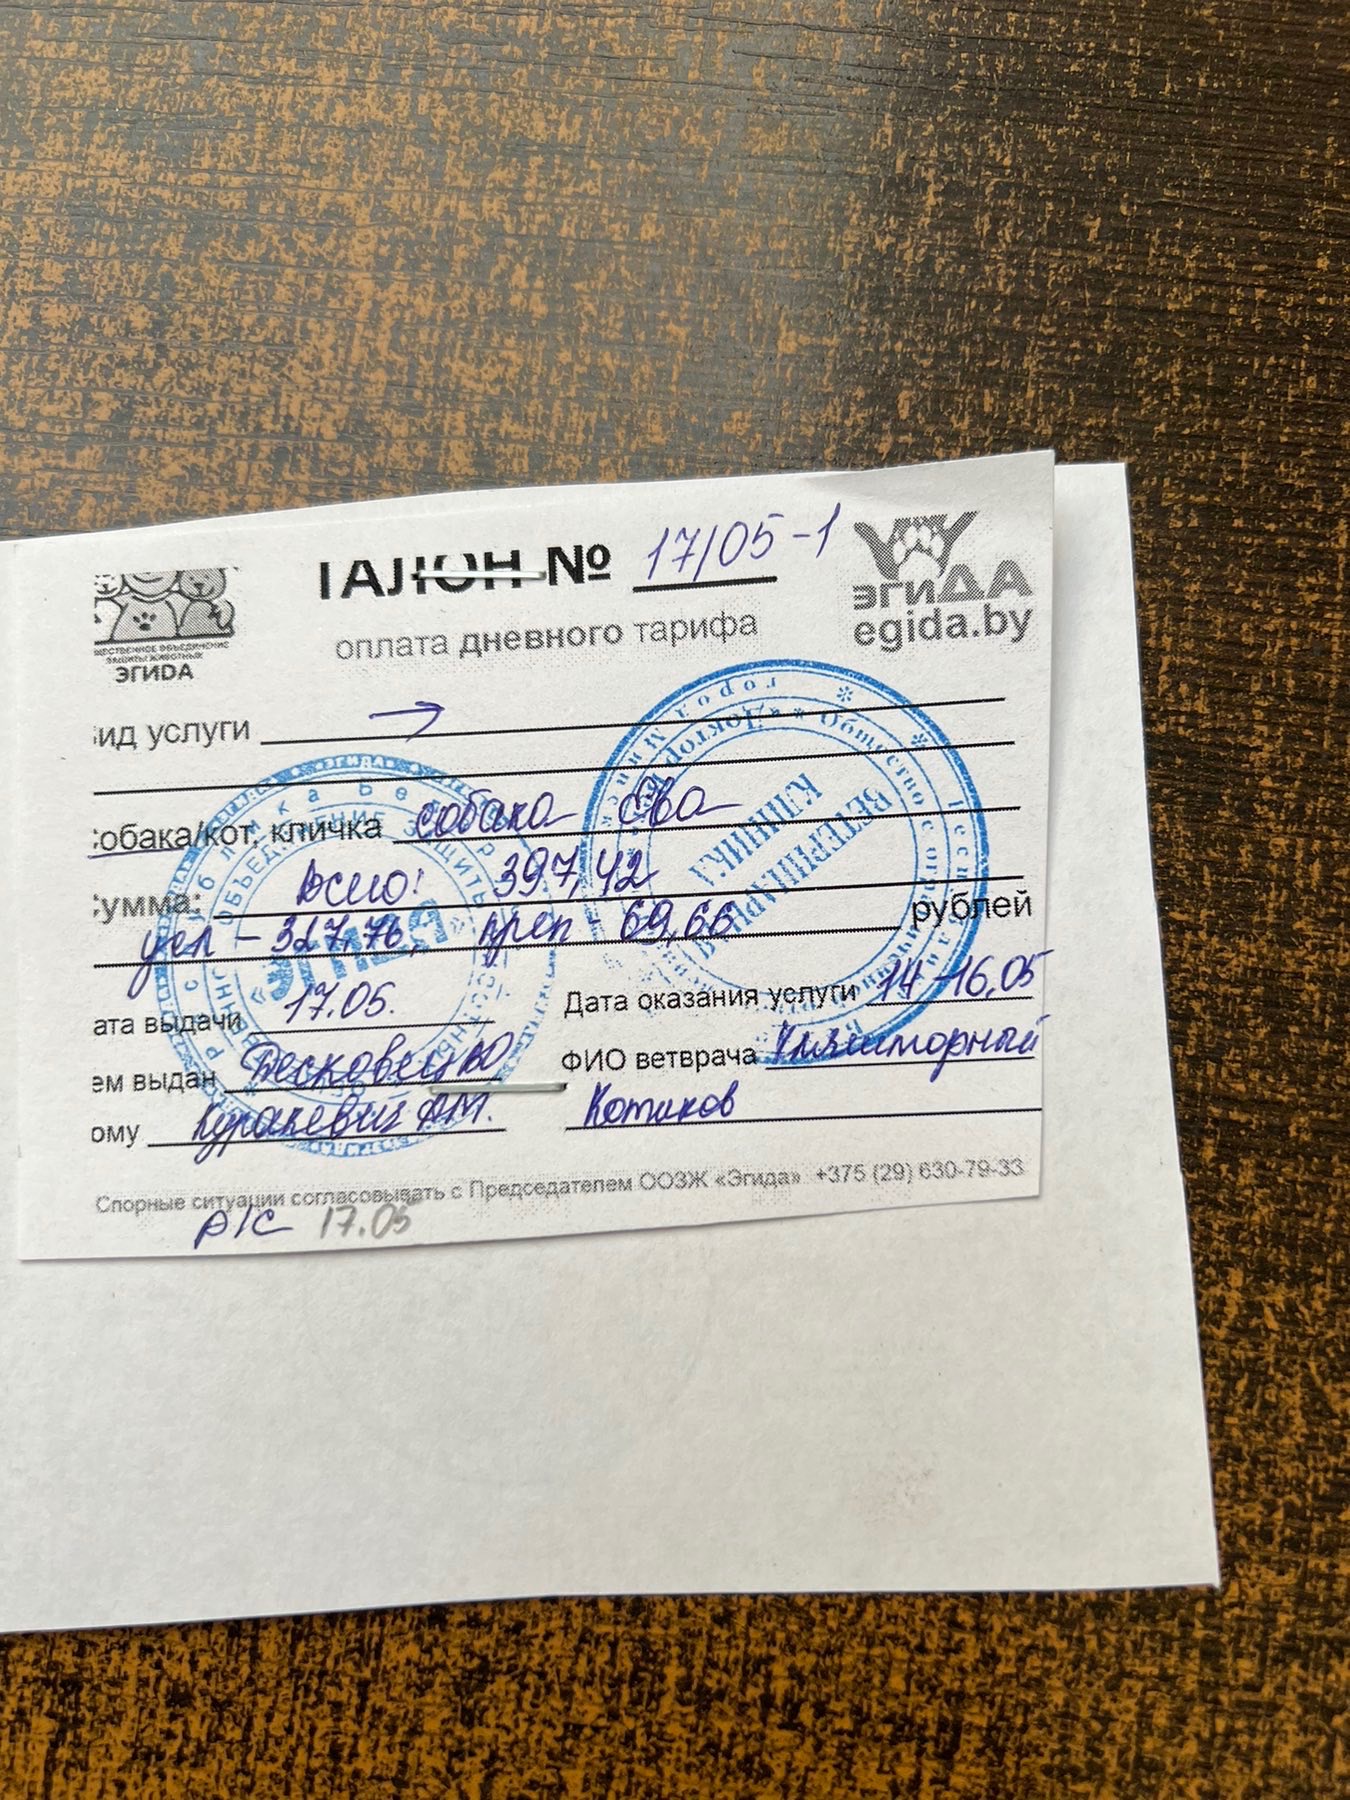 ТАЛОН № 17/05-1
оплата дневного тарифа
ЩЕСТВЕННОЕ ОБЪЕДИНЕНИЕ
ЗАЩИТЫ ЖИВОТНЫХ
ЭГИДА
ЭГИДА
egida.by
ид услуги →
собака/кот, кличка собака Ева
Сумма: Всего: 397,42
усл - 327,76, преп - 69,66 рублей
ата выдачи 17.05. Дата оказания услуги 14-16.05
ем выдан ФИО ветврача
ому Куракевич Котиков
Спорные ситуации согласовывать с Председателем ООЗЖ «Эгида» +375 (29) 630-79-33
р/с 17.05
«ЭГИДА»
ОБЪЕДИНЕНИЕ ЗАЩИТЫ
ВЕТЕРИНАРНАЯ
КЛИНИКА
город Минск